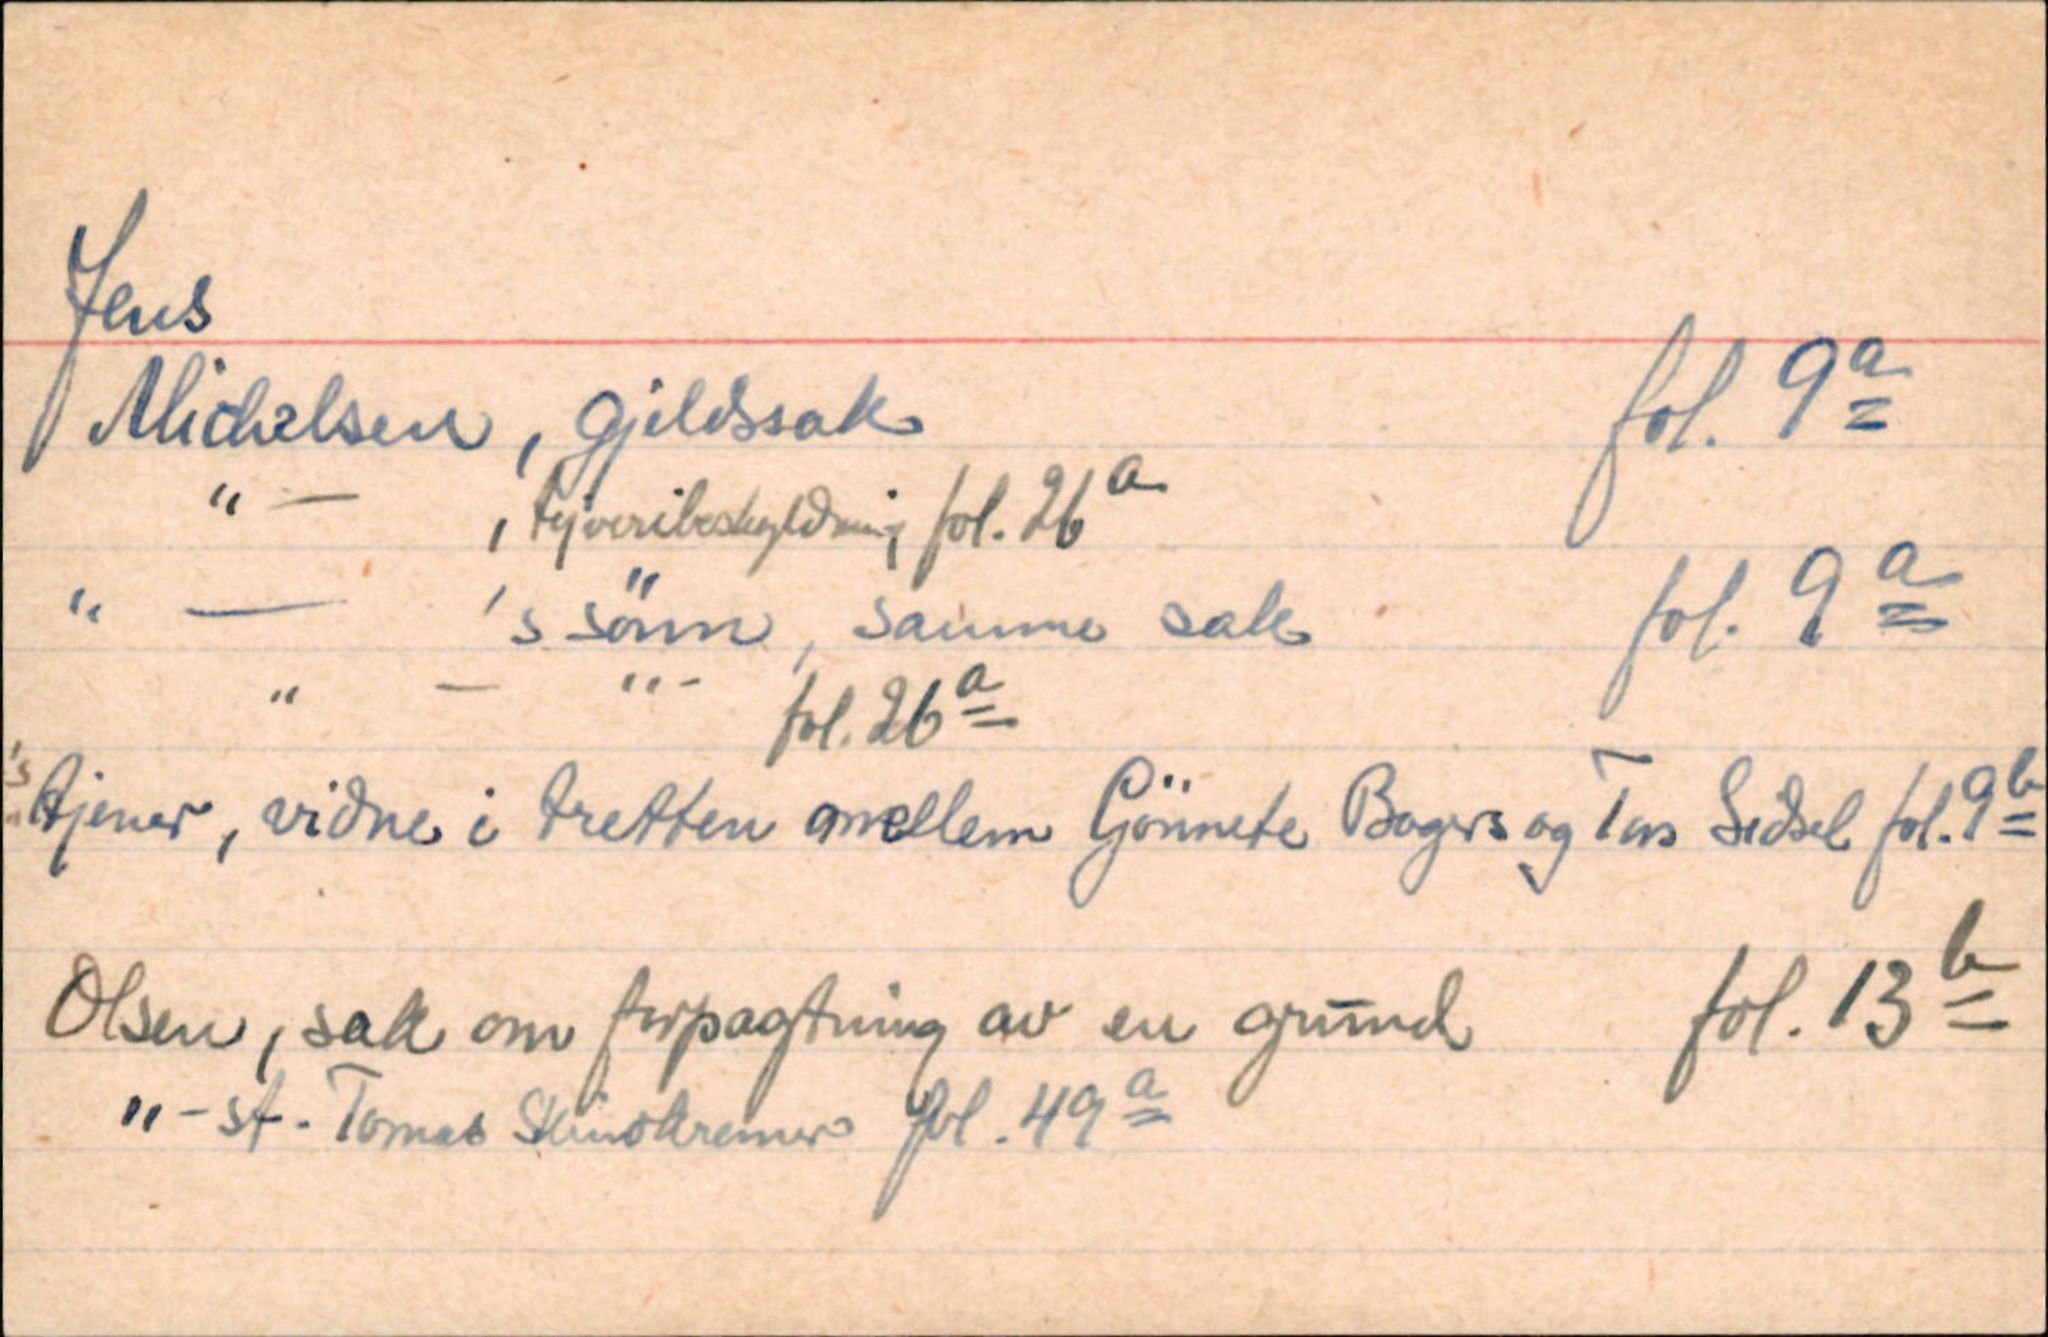 Jens
Michelsen, gjeldssak fol. 9a
" — , tyveribeskyldning fol. 26a
" — 's sönn, samme sak fol. 9a
" — " - fol. 26a
's tjener, vidne i tretten mellem Gönnete Bagers og Tors Sidsel fol. 9b
Olsen, sak om forpagtning av en grund fol. 13b
" - st. Tomas Skinnkremer fol. 49a